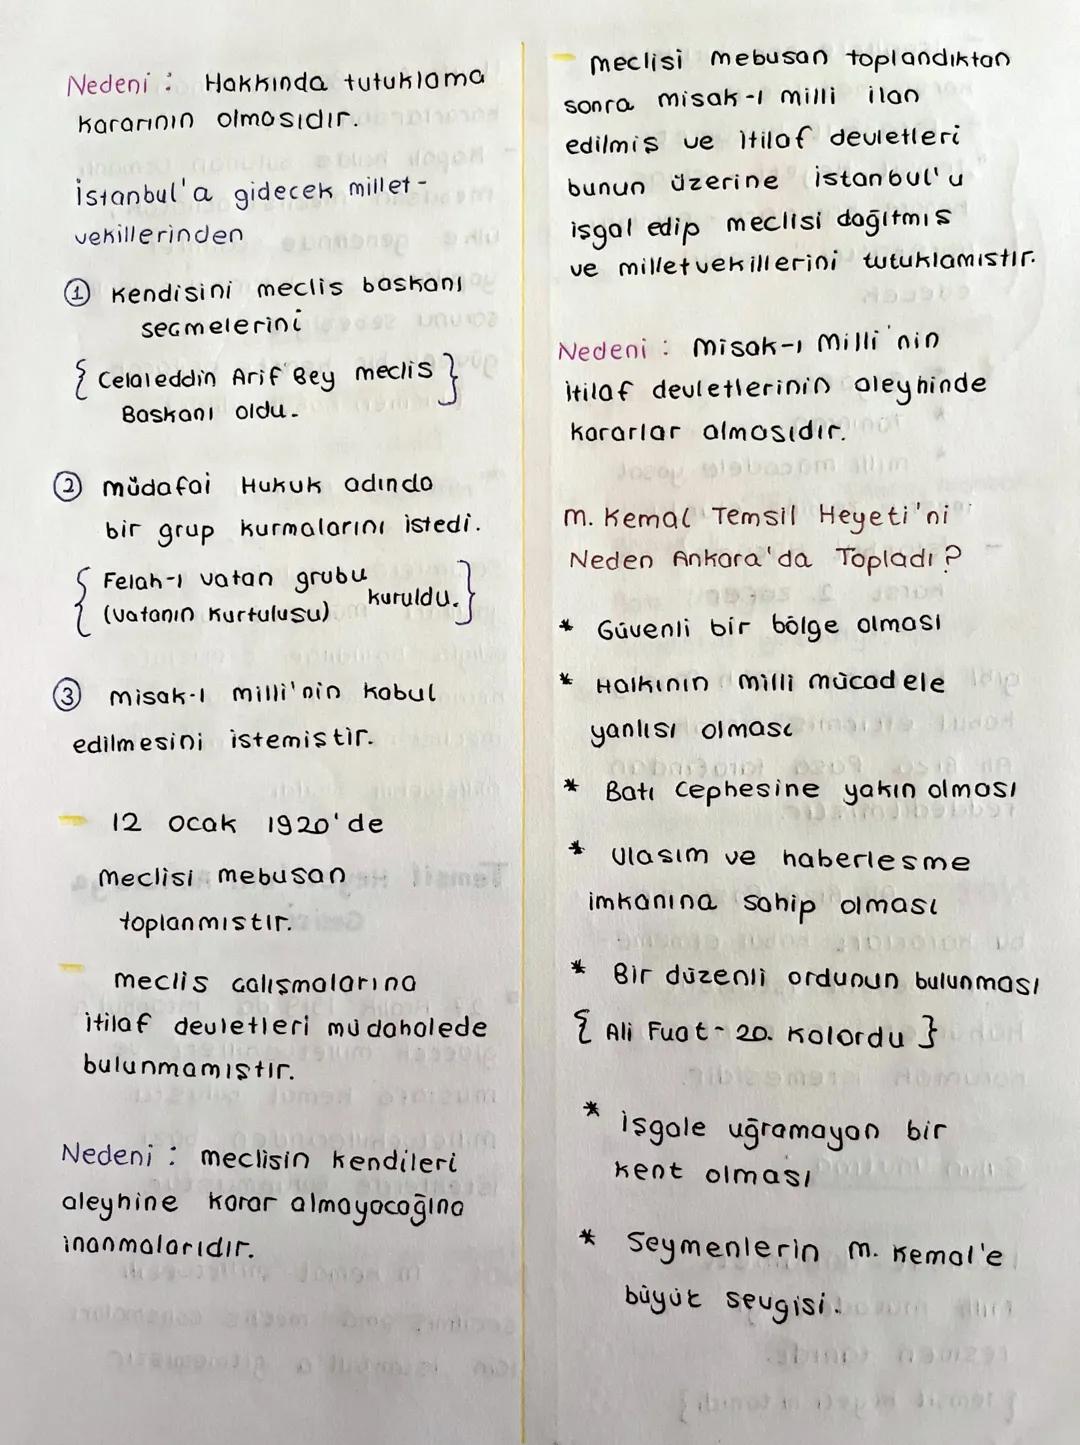 Nedeni : Hakkında tutuklama
kararının olmasıdır.
İstanbul'a gidecek millet-
vekillerinden
① Kendisini meclis başkanı
seçmelerini
{ Celaleddin Arif Bey meclis }
Başkanı oldu.
② müdafai Hukuk adında
bir grup kurmalarını istedi.
{ Felah-ı vatan grubu
(vatanın kurtuluşu) kuruldu. }
③ misak-ı milli'nin kabul
edilmesini istemiştir.
- 12 ocak 1920'de
meclisi mebusan
toplanmıştır.
- meclis çalışmalarına
itilaf devletleri müdahalede
bulunmamıştır.
Nedeni : meclisin kendileri
aleyhine karar almayacağına
inanmalarıdır.
- meclisi mebusan toplandıktan
sonra misak-ı milli ilan
edilmiş ve itilaf devletleri
bunun üzerine istanbul'u
işgal edip meclisi dağıtmış
ve milletvekillerini tutuklamıştır.
Nedeni : misak-ı milli'nin
itilaf devletlerinin aleyhinde
kararlar almasıdır.
m. Kemal Temsil Heyeti'ni
Neden Ankara'da Topladı?
* Güvenli bir bölge olması
* Halkının milli mücadele
yanlısı olması
* Batı cephesine yakın olması
* Ulaşım ve haberleşme
imkanına sahip olması
* Bir düzenli ordunun bulunması
{ Ali Fuat - 20. Kolordu }
* işgale uğramayan bir
kent olması
* Seymenlerin m. Kemal'e
büyük sevgisi.